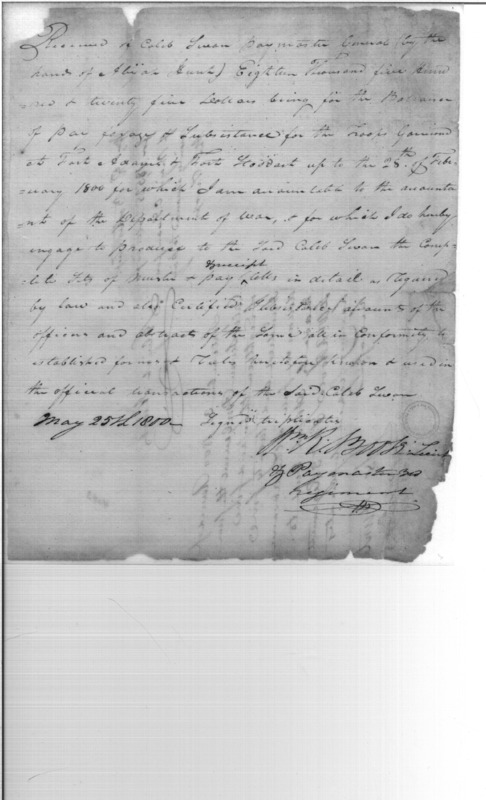 Received of Caleb Swan paymaster General (by the
hands of Elijah Eighteen Thousand five hund
red & twenty five Dollars being for the Ballance
of pay forage & Subsistance for the Troops Garrisond
at Fort Adams & Fort Stoddart up to the 28th of Feb-
uary 1800 for which I am accountable to the account
nt of the Department of War, & for which I do hereby
engage to produce to the said Caleb Swan the Comp-
lete Sets of Muster & pay rolls & receipt in detail as Required
by law and also Certified Subsistance accounts of the
officers and abstracts of the Same all in Conformity to
established forms & Rules heretofore & used in
the official transactions of the Said Caleb Swan
May 25th 1800 Signd triplicates
Wm R. Boote Lieut
& Paymaster 3rd
Regiment